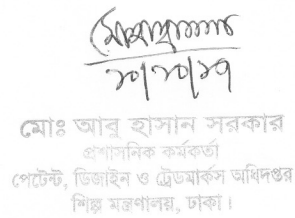 ২০/২০/১৭
মোঃ আবু হাসান সরকার
প্রশাসনিক কর্মকর্তা
পেটেন্ট, ডিজাইন ও ট্রেডমার্কস অধিদপ্তর
শিল্প মন্ত্রণালয়, ঢাকা।